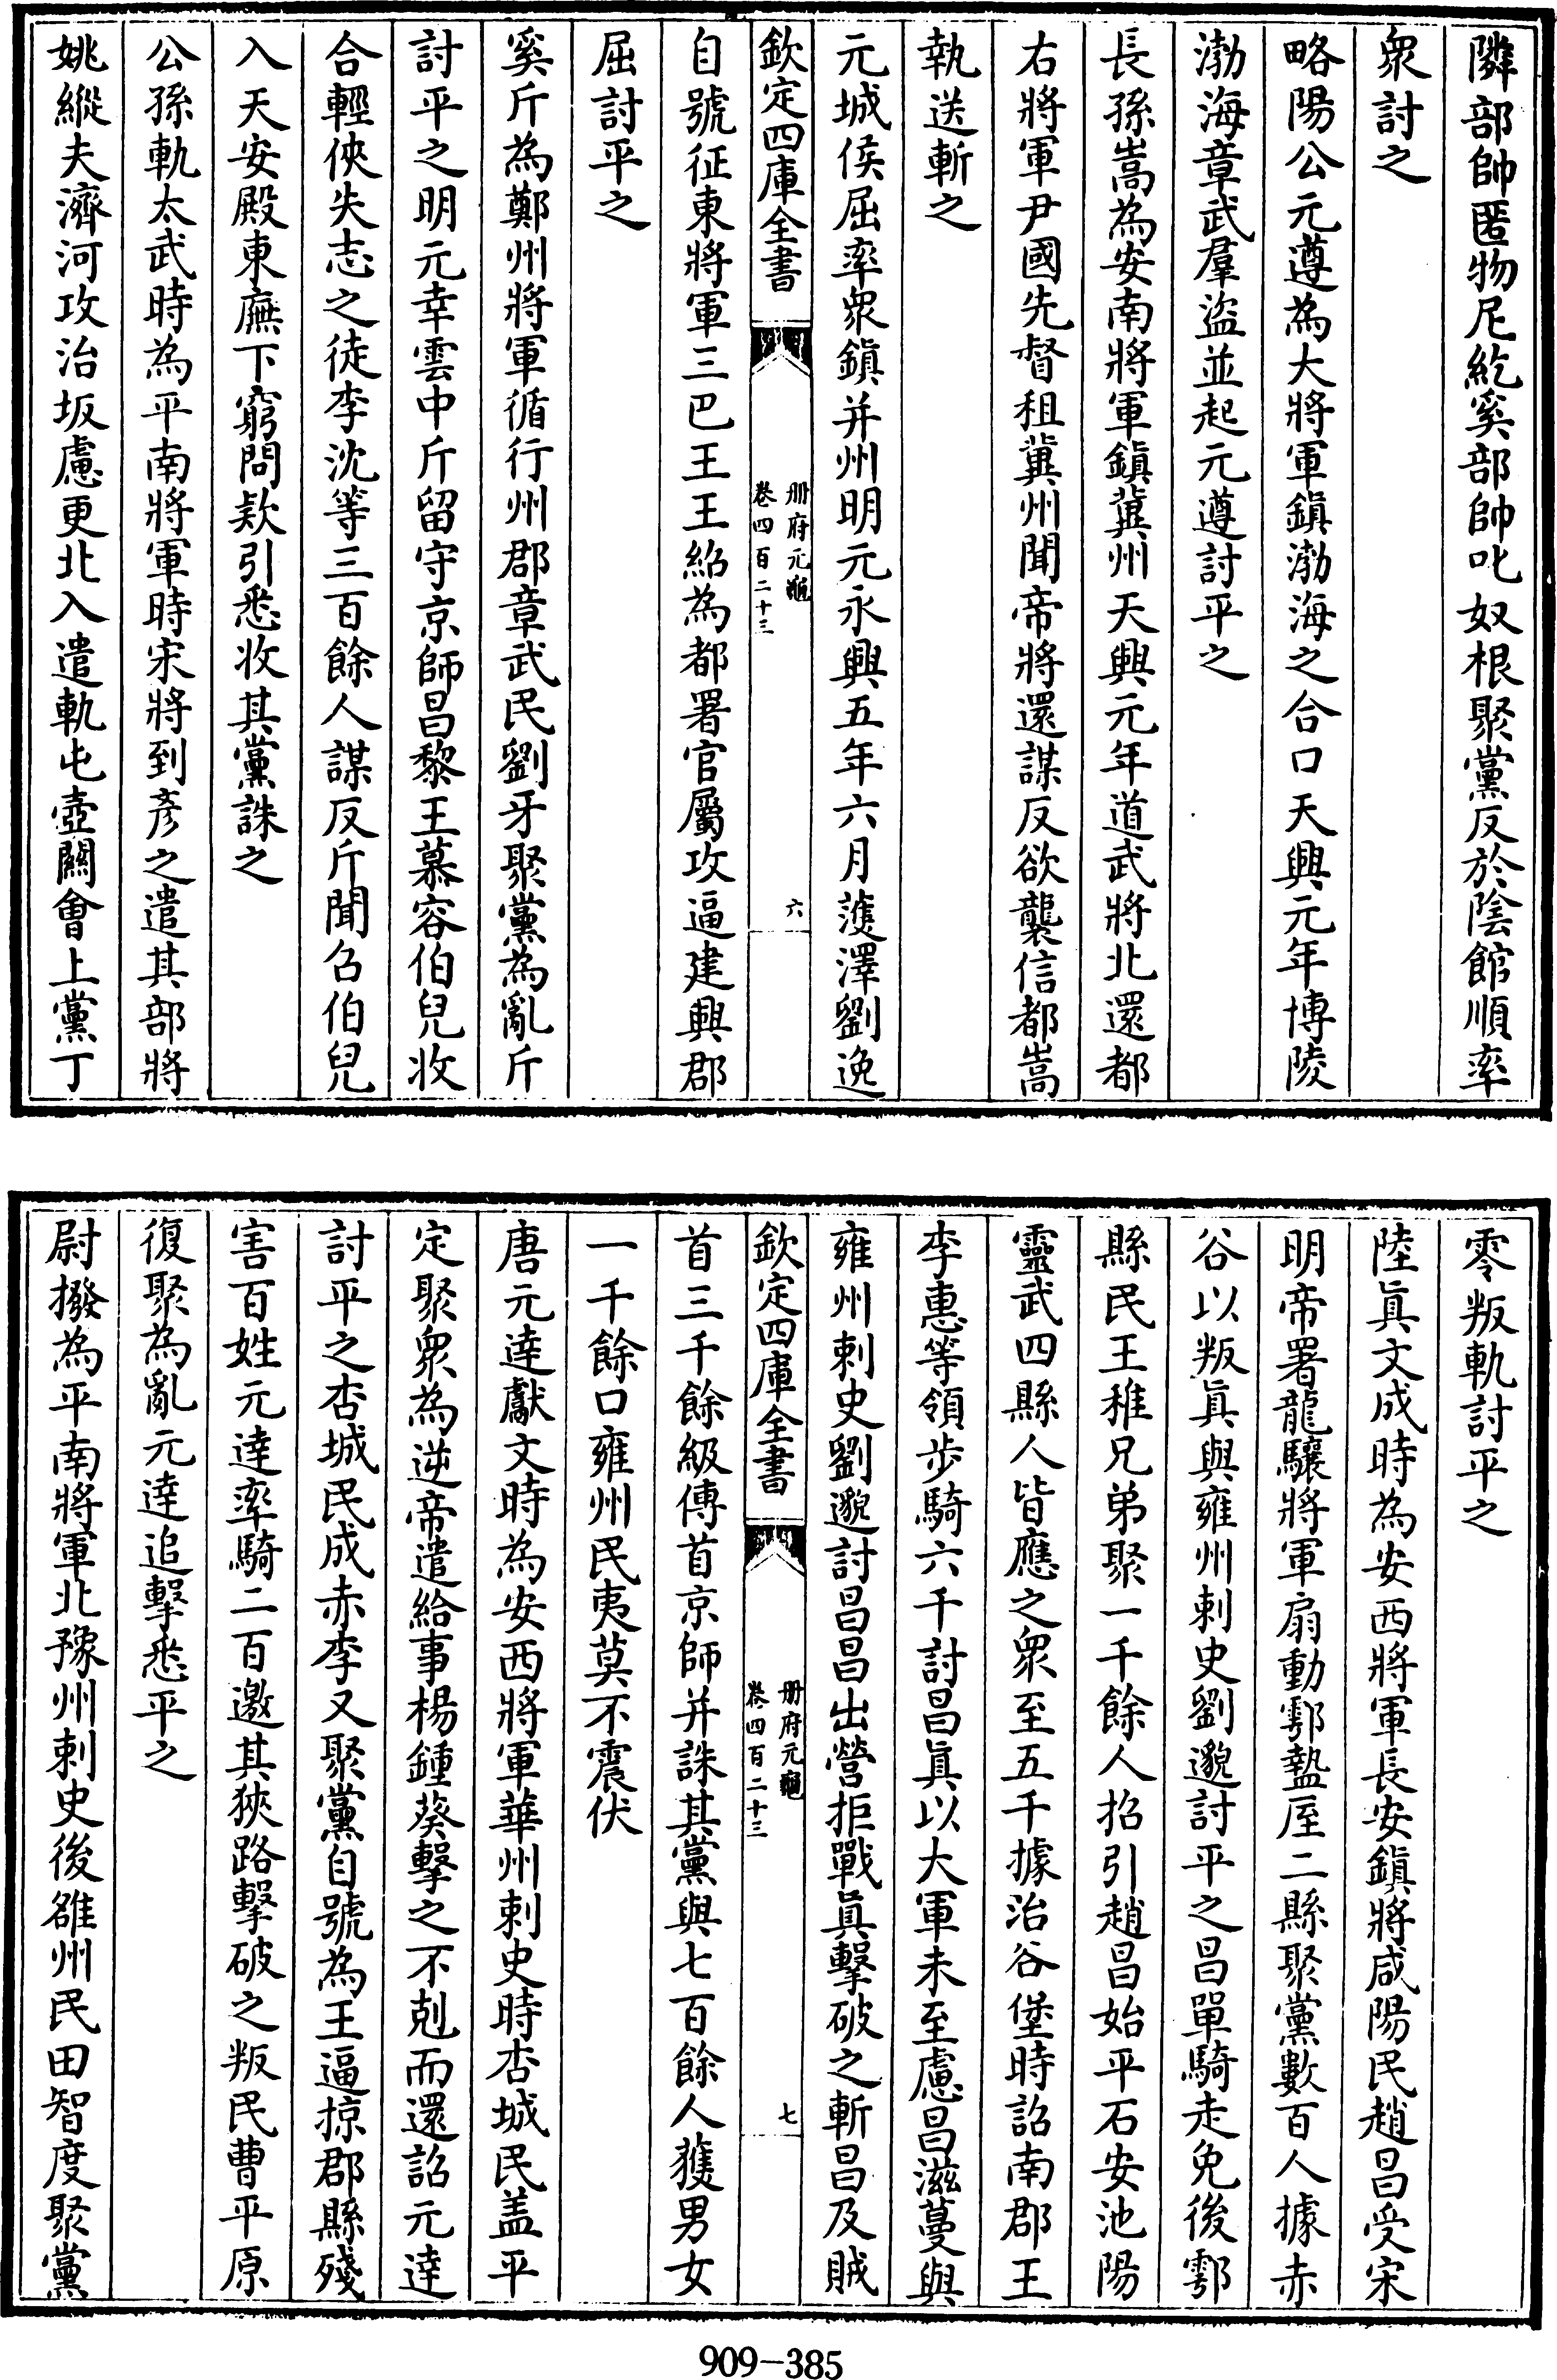 隣部帥匿物尼紇奚部帥叱奴根聚黨反於陰館順率
衆討之
略陽公元遵為大將軍鎮渤海之合口天興元年博陵
渤海章武羣盜並起元遵討平之
長孫嵩為安南將軍鎮冀州天興元年道武將北還都
右將軍尹國先督租冀州聞帝將還謀反欲襲信都嵩
執送斬之
元城侯屈率衆鎮并州明元永興五年六月濩澤劉逸
欽定四庫全書
册府元龜
卷四百二十三
六
自號征東將軍三巴王王紹為都署官屬攻逼建興郡
屈討平之
奚斤為鄭州將軍循行州郡章武民劉牙聚黨為亂斤
討平之明元幸雲中斤留守京師昌黎王慕容伯兒收
合輕俠失志之徒李沈等三百餘人謀反斤聞召伯兒
入天安殿東廡下窮問欵引悉收其黨誅之
公孫軌太武時為平南將軍時宋將到彥之遣其部將
姚縱夫濟河攻冶坂慮更北入遣軌屯壺關會上黨丁
零叛軌討平之
陸真文成時為安西將軍長安鎮將咸陽民趙昌受宋
明帝署龍驤將軍扇動鄠盩厔二縣聚黨數百人據赤
谷以叛真與雍州刺史劉邈討平之昌單騎走免後鄠
縣民王稚兄弟聚一千餘人招引趙昌始平石安池陽
靈武四縣人皆應之衆至五千據治谷堡時詔南郡王
李惠等領步騎六千討昌真以大軍未至慮昌滋蔓與
雍州刺史劉邈討昌昌出營拒戰真擊破之斬昌及賊
欽定四庫全書
册府元龜
卷四百二十三
七
首三千餘級傳首京師并誅其黨與七百餘人獲男女
一千餘口雍州民夷莫不震伏
唐元達獻文時為安西將軍華州刺史時杏城民盖平
定聚衆為逆帝遣給事楊鍾葵擊之不剋而還詔元達
討平之杏城民成赤李又聚黨自號為王逼掠郡縣殘
害百姓元達率騎二百邀其狹路擊破之叛民曹平原
復聚為亂元達追擊悉平之
尉撥為平南將軍北豫州刺史後雒州民田智度聚黨
909-385